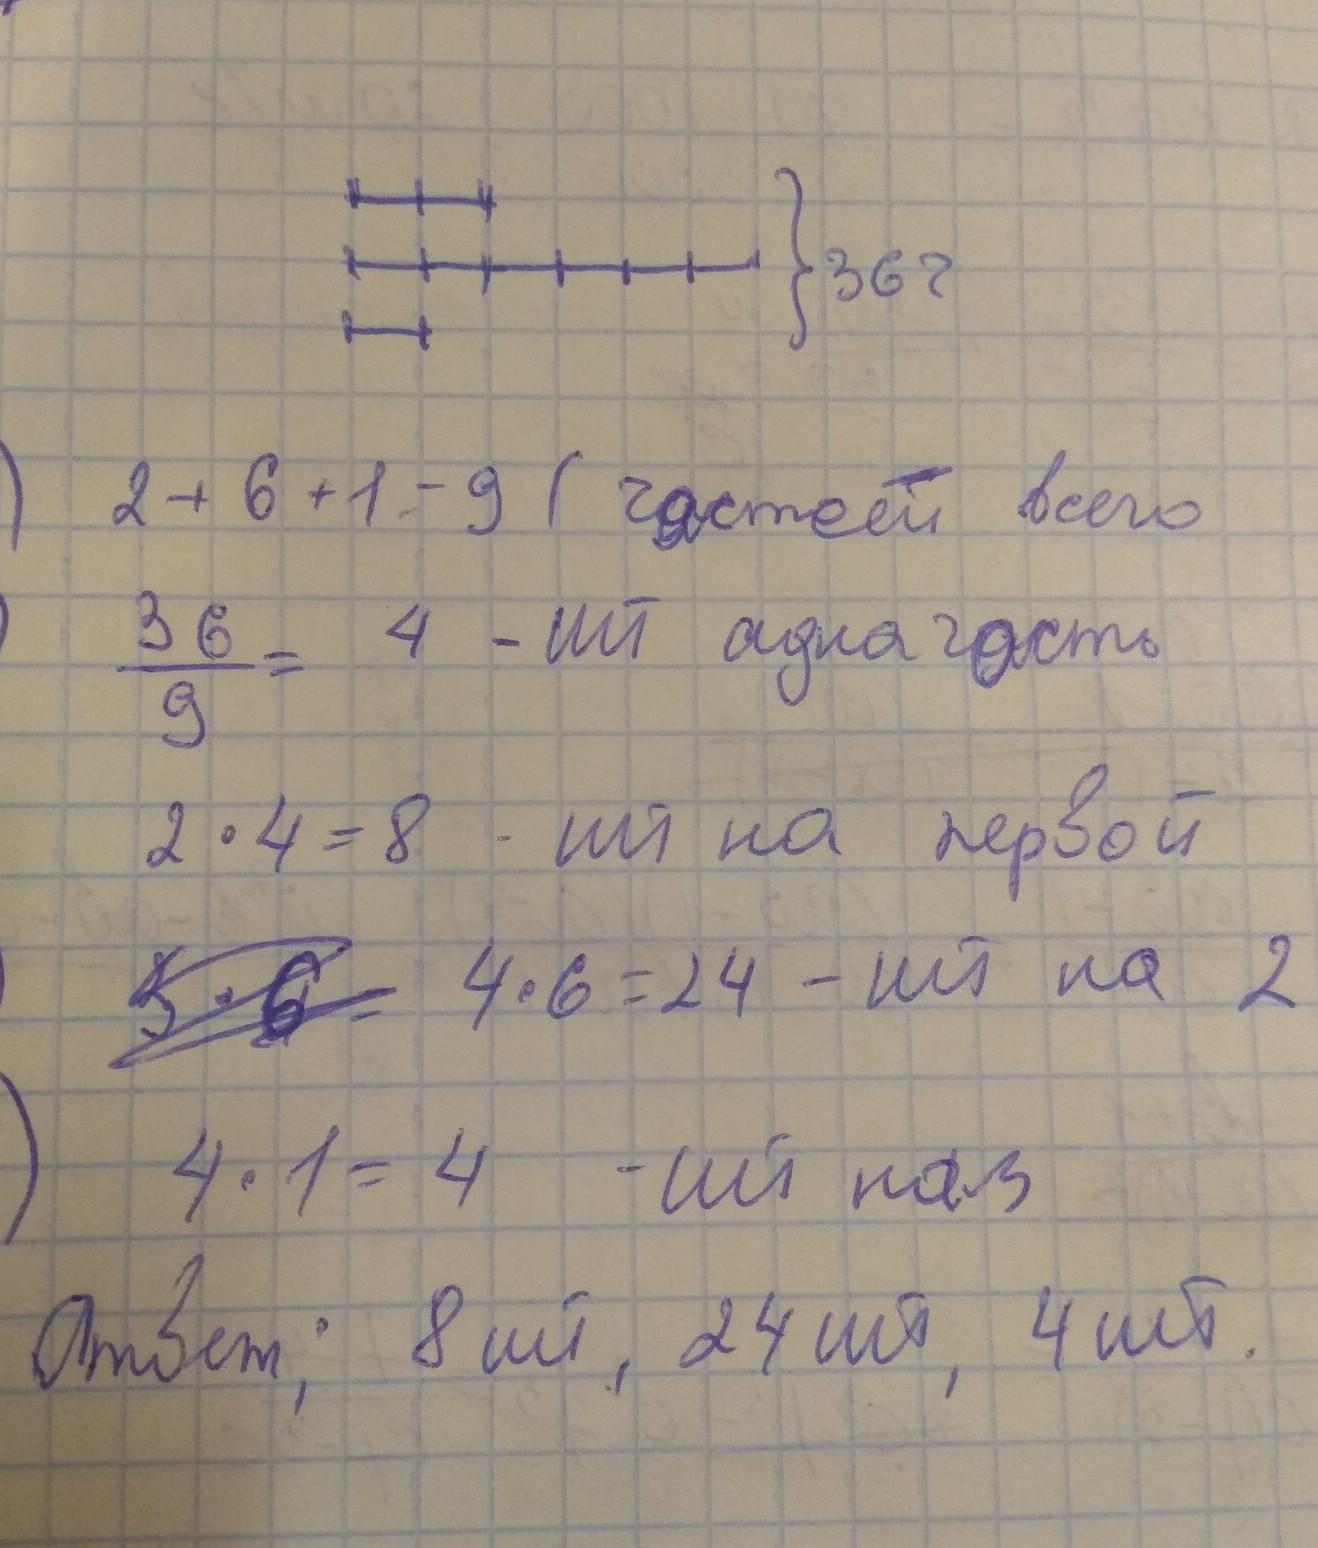 36 г
) 2 + 6 + 1 = 9 ( частей всего
) 36/9 = 4 - шт адна часть
2 · 4 = 8 - шт на первой
) 4 · 6 = 24 - шт на 2
) 4 · 1 = 4 - шт на 3
Ответ; 8 шт, 24 шт, 4 шт.